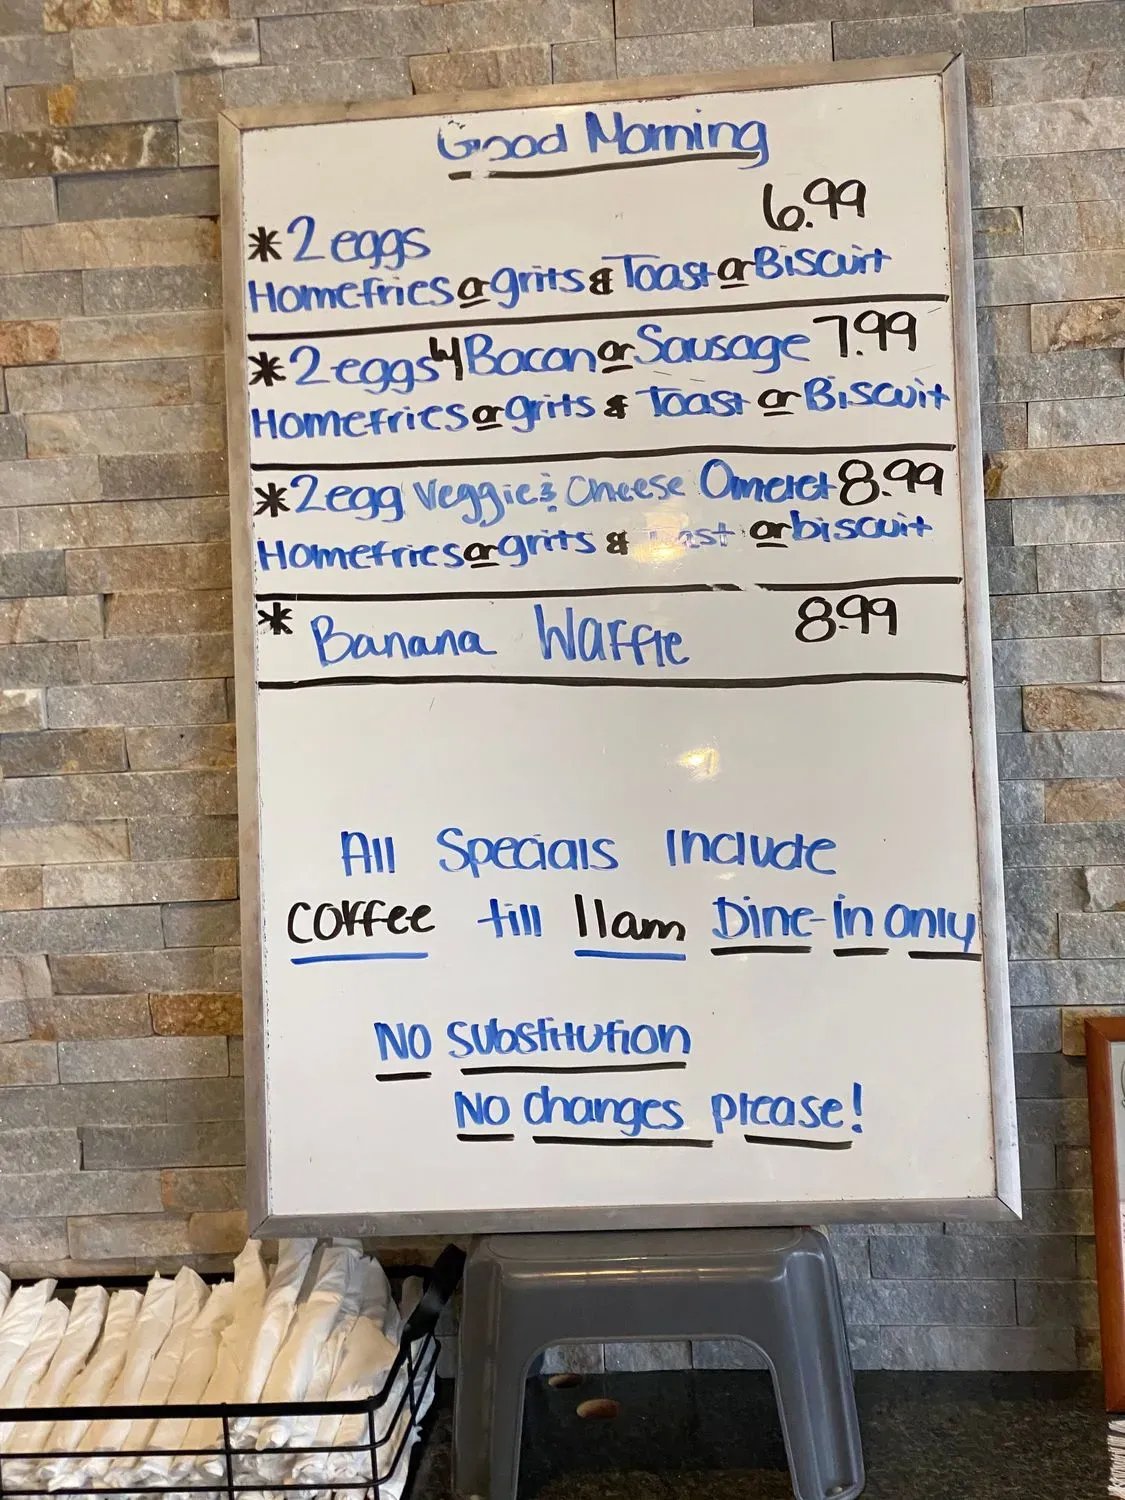 Good Morning
6.99
*2 eggs
Homefries or grits & Toast or Biscuit
*2 eggs w/ Bacon or Sausage 7.99
Homefries or grits & Toast or Biscuit
*2 egg Veggie & Cheese Omelet 8.99
Homefries or grits & Toast or biscuit
* Banana Waffle 8.99
All Specials Include
coffee till 11am Dine-in only
No substitution
No changes please!